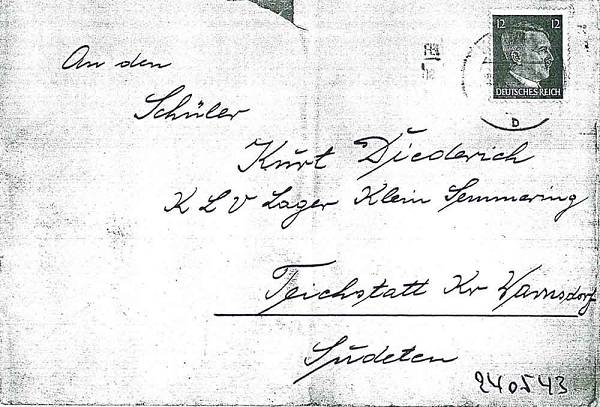 12 12
DEUTSCHES REICH
D
An den
Schüler
Kurt Diederich
K L V Lager Klein Semmering
Teichstatt Kr Warnsdorf
Sudeten
240543